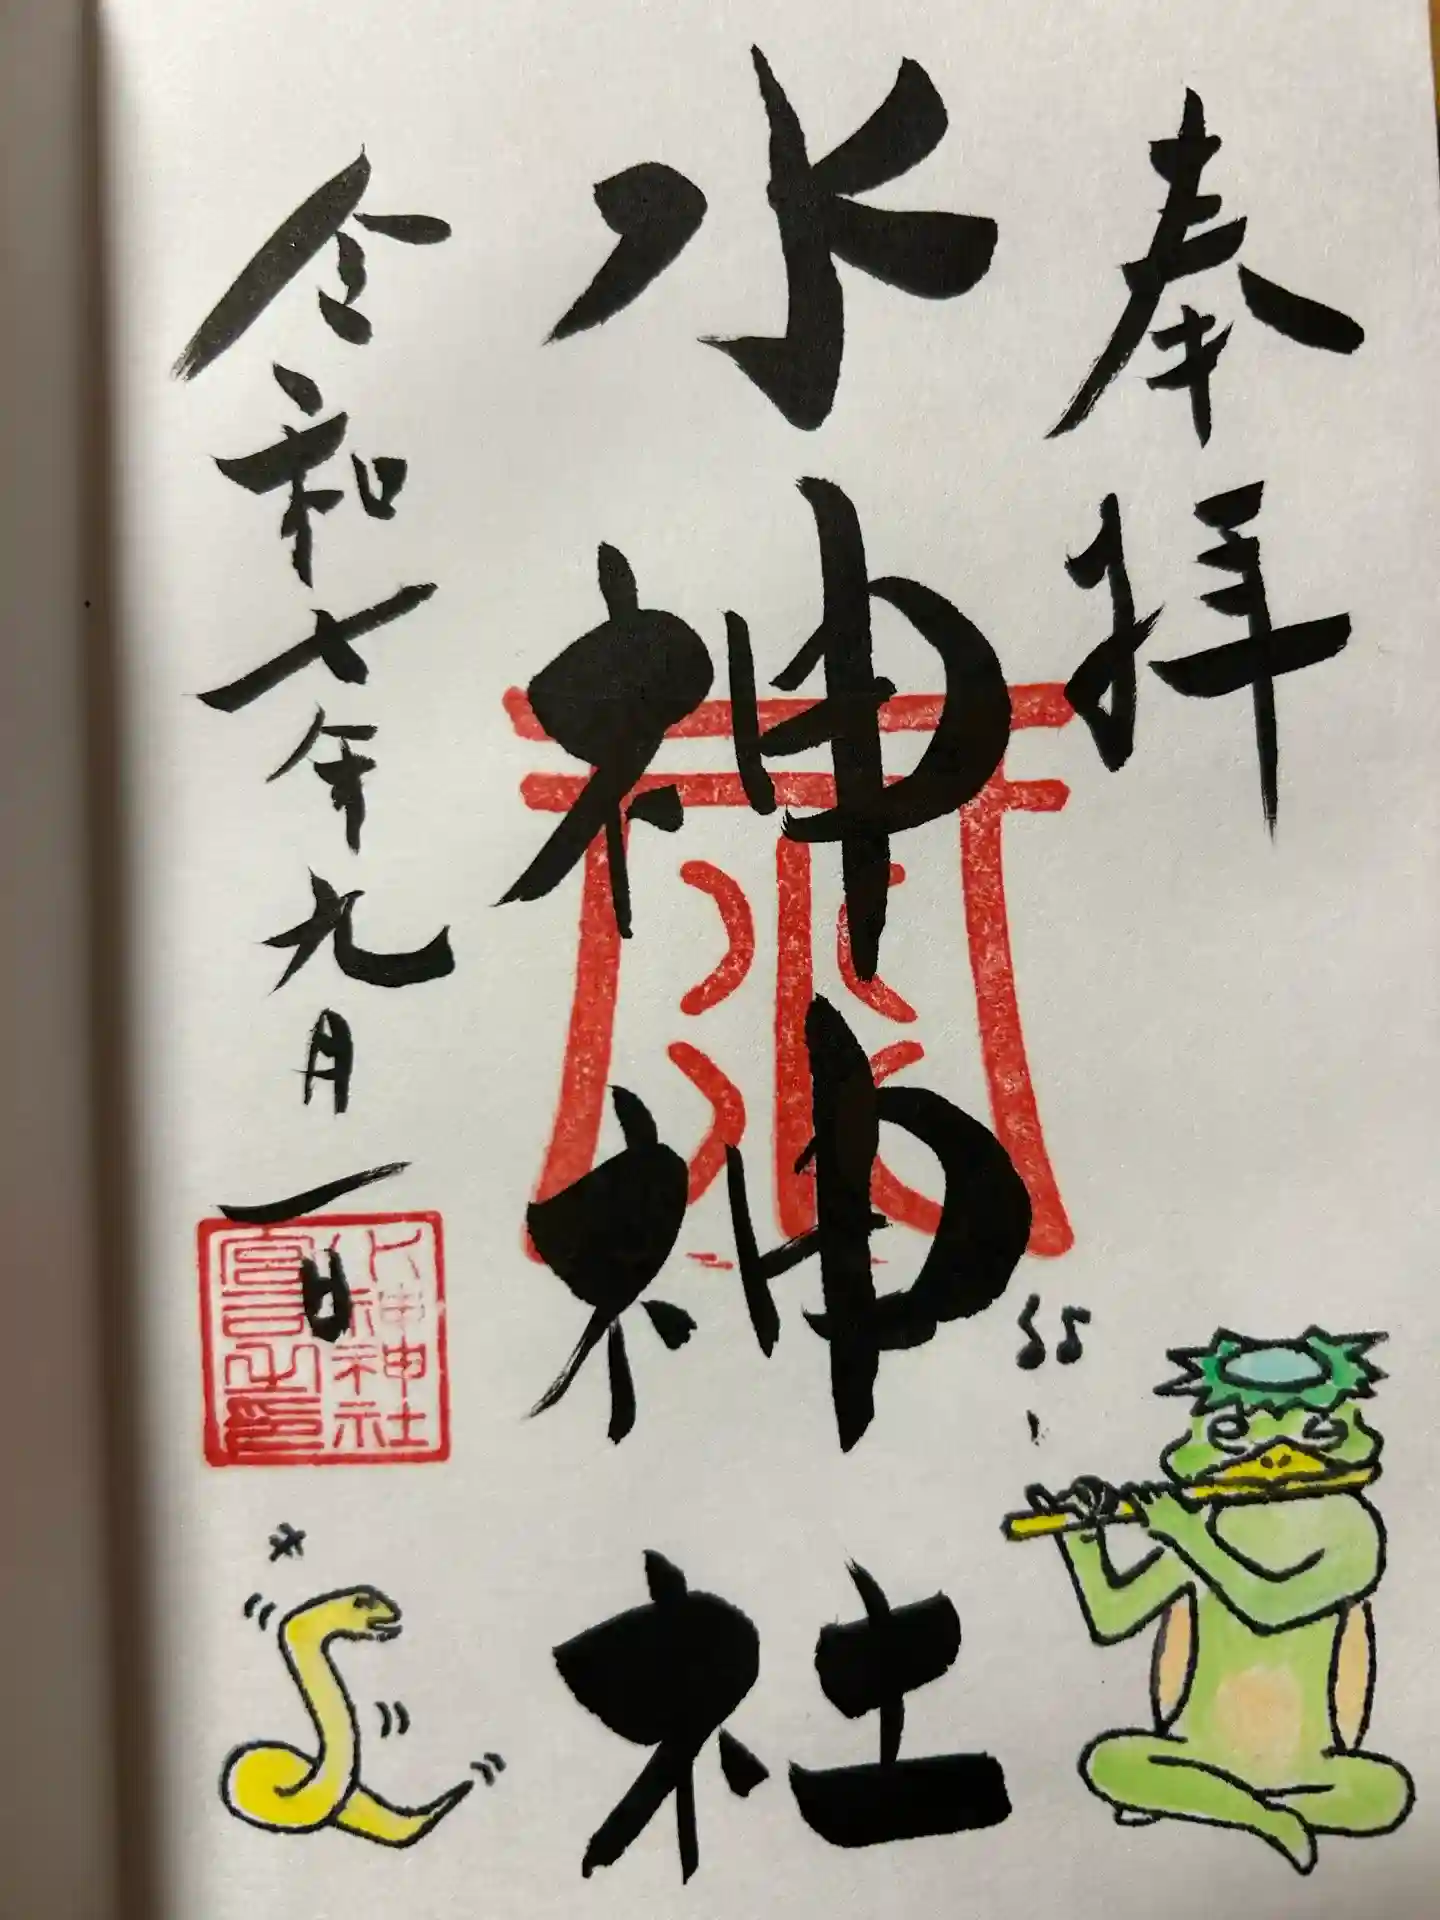 奉拝
水神神社
令和七年九月一日
水神神社
宮司之印